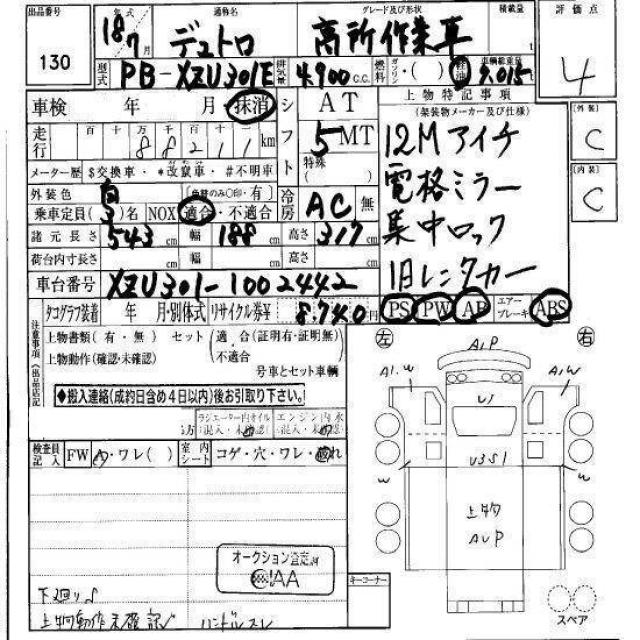 出品番号 130
年式 18 7月 通称名 デュトロ グレード及び形状 高所作業車 積載量 t
型式 PB-XZU301E 排気量 4,900 C.C. 燃料 ガソリン・( ) 軽油 車輌総重量 9,015 t
評価点 4
車検 年 月 抹消
走行 百 十 万 千 百 十 一 km
8 8 2 1 1
メーター歴 $交換車・*改竄車・#不明車
シフト AT
5 MT
特殊( )
上物特記事項
(架装物メーカー及び仕様)
12M アイチ
電格ミラー
集中ロック
旧レンタカー
PS PW AB エアーブレーキ ABS
外装 C
内装 C
外装色 白 有
乗車定員(3)名 NOX 適合・不適合
冷房 AC 無
諸元長さ 543 cm 幅 188 cm 高さ 317 cm
荷台内寸長さ cm 幅 cm 高さ cm
車台番号 XZU301-1002442
タコグラフ装着 年 月・別体式 リサイクル券¥ 8,740円
注意事項(出品店記
上物書類(有・無) セット(適合(証明有・証明無)
上物動作(確認・未確認) 不適合
号車とセット車輌
◆搬入連絡(成約日含め4日以内)後お引取り下さい。
ラジエーター内オイル エンジン内水
混入・未確認 混入・未確認
検査員記入 FW A・ワレ( ) 室内シート コゲ・穴・ワレ・破れ
左 右
A1P
A1.W A1W
U1
W U3S1 W
上物
AUP
スペア
オークション査定
AA
キーコーナー
下廻りS
上物動作未確認 ハンドルスレ